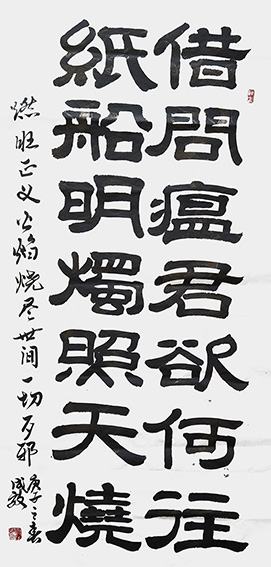 借問瘟君欲何往
紙船明燭照天燒
燃旺正义公焰烧尽世间一切万邪
庚子之春